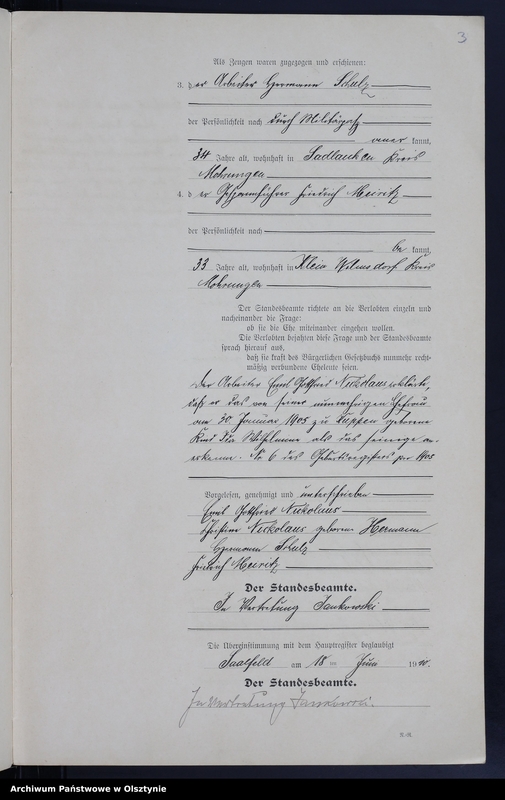 3
Als Zeugen waren zugezogen und erschienen:
3. der Arbeiter Hermann Schulz
der Persönlichkeit nach durch Militärpaß
aner kannt,
34 Jahre alt, wohnhaft in Sadlauken Kreis
Mohrungen
4. der Gespannführer Friedrich Meiritz
der Persönlichkeit nach
be kannt,
33 Jahre alt, wohnhaft in Klein Wilmsdorf Kreis
Mohrungen
Der Standesbeamte richtete an die Verlobten einzeln und
nacheinander die Frage:
ob sie die Ehe miteinander eingehen wollen.
Die Verlobten bejahten diese Frage und der Standesbeamte
sprach hierauf aus,
daß sie kraft des Bürgerlichen Gesetzbuchs nunmehr recht-
mäßig verbundene Eheleute seien.
Der Arbeiter Ernst Gottfried Nickolaus erklärte,
daß er das von seiner nunmehrigen Ehefrau
am 30. Januar 1905 zu Kuppen geborene
Kind Ida Wilhelmine als das seinige an-
erkenne. No 6 des Geburtsregisters pro 1905
Vorgelesen, genehmigt und unterschrieben
Ernst Gottfried Nickolaus
Christine Nickolaus geborene Hermann
Hermann Schulz
Friedrich Meiritz
Der Standesbeamte.
In Vertretung Jankowski
Die Übereinstimmung mit dem Hauptregister beglaubigt
Saalfeld am 18 ten Juni 1910.
Der Standesbeamte.
In Vertretung Jankowski.
Archiwum Państwowe w Olsztynie